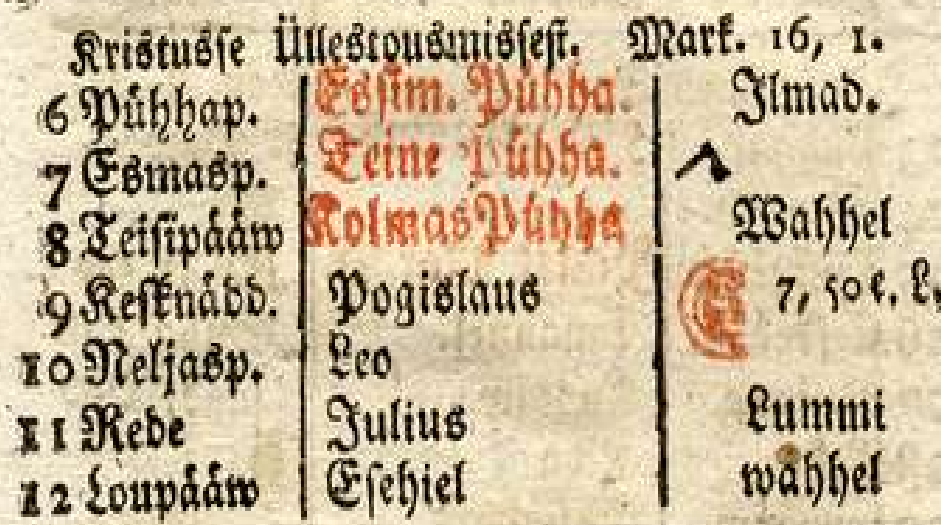 Kristusse Üllestousmissest. Mark. 16, 1.
6 Pühhap. Essim. Pühha. Ilmad.
7 Esmasp. Teine Pühha.
8 Teisipääw Kolmas Pühha Wahhel
9 Kesknädd. Pogislaus 7, 50 e. L.
10 Neljasp. Leo
11 Rede Julius Lummi
12 Loupääw Esehiel wahhel